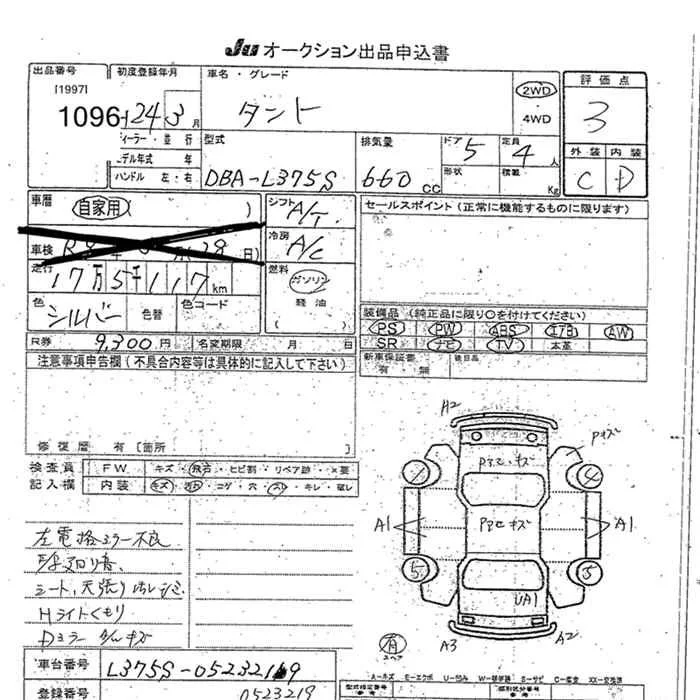 Ju オークション出品申込書
出品番号 初度登録年月 車名・グレード 2WD 評価点
[1997]
1096 24 3月 タント ・ 3
4WD
ィーラー・並行 型式 排気量 ドア 5 定員 4人 外装 内装
デル年式 年 形状 積載 Kg
ハンドル 左・右 DBA-L375S 660 CC C D
車歴 自家用( ) シフト A/T セールスポイント(正常に機能するものに限ります)
車検 冷房 A/C
走行 17万5千117km 燃料 ガソリン
軽油
( )
色 シルバー 色替 色コード 装備品(純正品に限り○を付けてください)
PS PW ABS エアB AW
SR ナビ TV 本革
R券 9,300円 名変期限 月 日 新車保証書 後日品
有 無
注意事項申告欄(不具合内容等は具体的に記入して下さい)
修復歴 有[箇所 ]
検査員 FW キズ・飛石・ヒビ割・リペア跡・×要
記入欄 内装 キズ・汚れ・コゲ・穴・スレ・キレ・破レ
左電格ミラー不良
シート、天張り汚れシミ
Hライトくもり
Dミラー
A2
Pキズ
4
P3C・キズ
A1 PPCキズ A1
5 5
UA1
有 A3 A2
スペア
車台番号 L375S-0523219
登録番号 0523219
A-キズ E-エクボ U-凹み W-補修跡 S-サビ C-腐食 XX-交換済
型式指定番号 類別区分番号
参考 参考